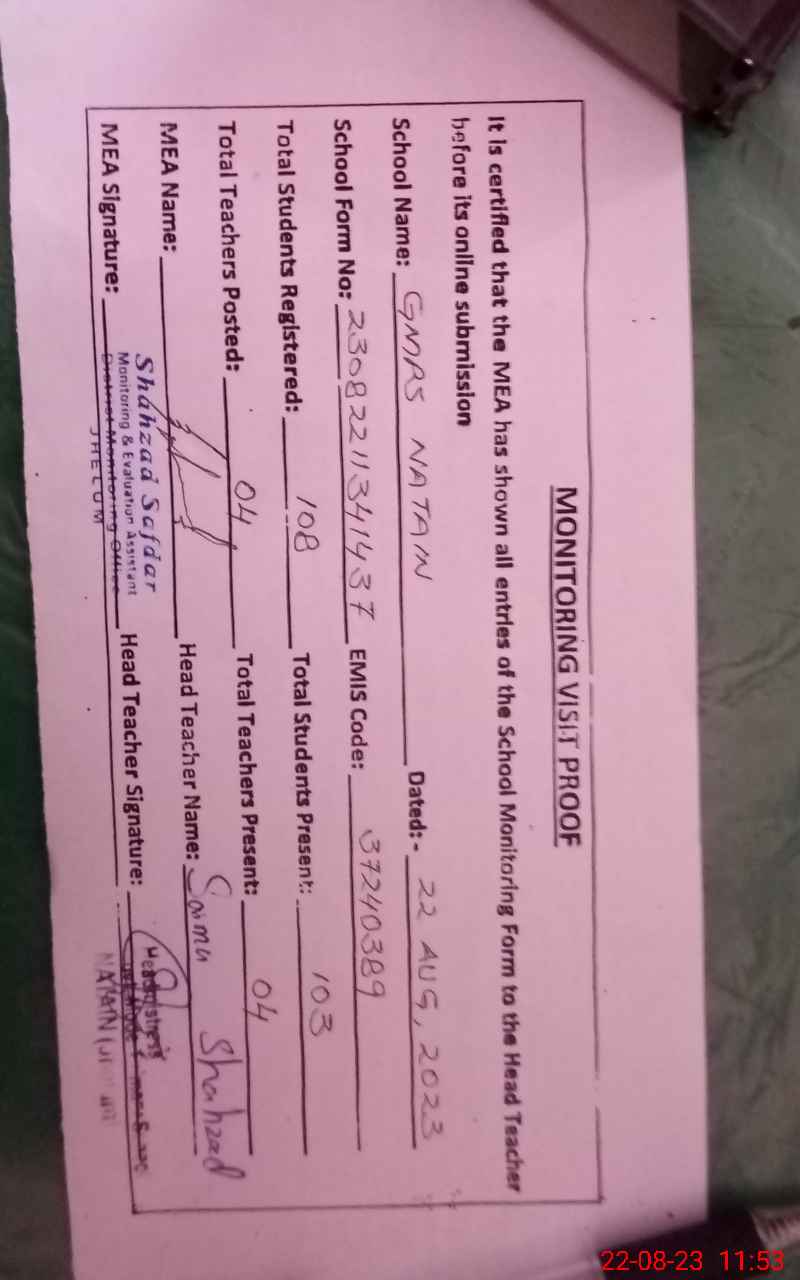 MONITORING VISIT PROOF
It is certified that the MEA has shown all entries of the School Monitoring Form to the Head Teacher
before its online submission
School Name: GMPS NATAIN Dated:- 22 AUG, 2023
School Form No: 23082211341437 EMIS Code: 37240389
Total Students Registered: 108 Total Students Present: 103
Total Teachers Posted: 04 Total Teachers Present: 04
MEA Name: Head Teacher Name: Saima Shahzad
MEA Signature: Head Teacher Signature:
Shahzad Safdar
Monitoring & Evaluation Assistant
District Monitoring Office
JHELUM
Headmistress
NATAIN
22-08-23 11:53